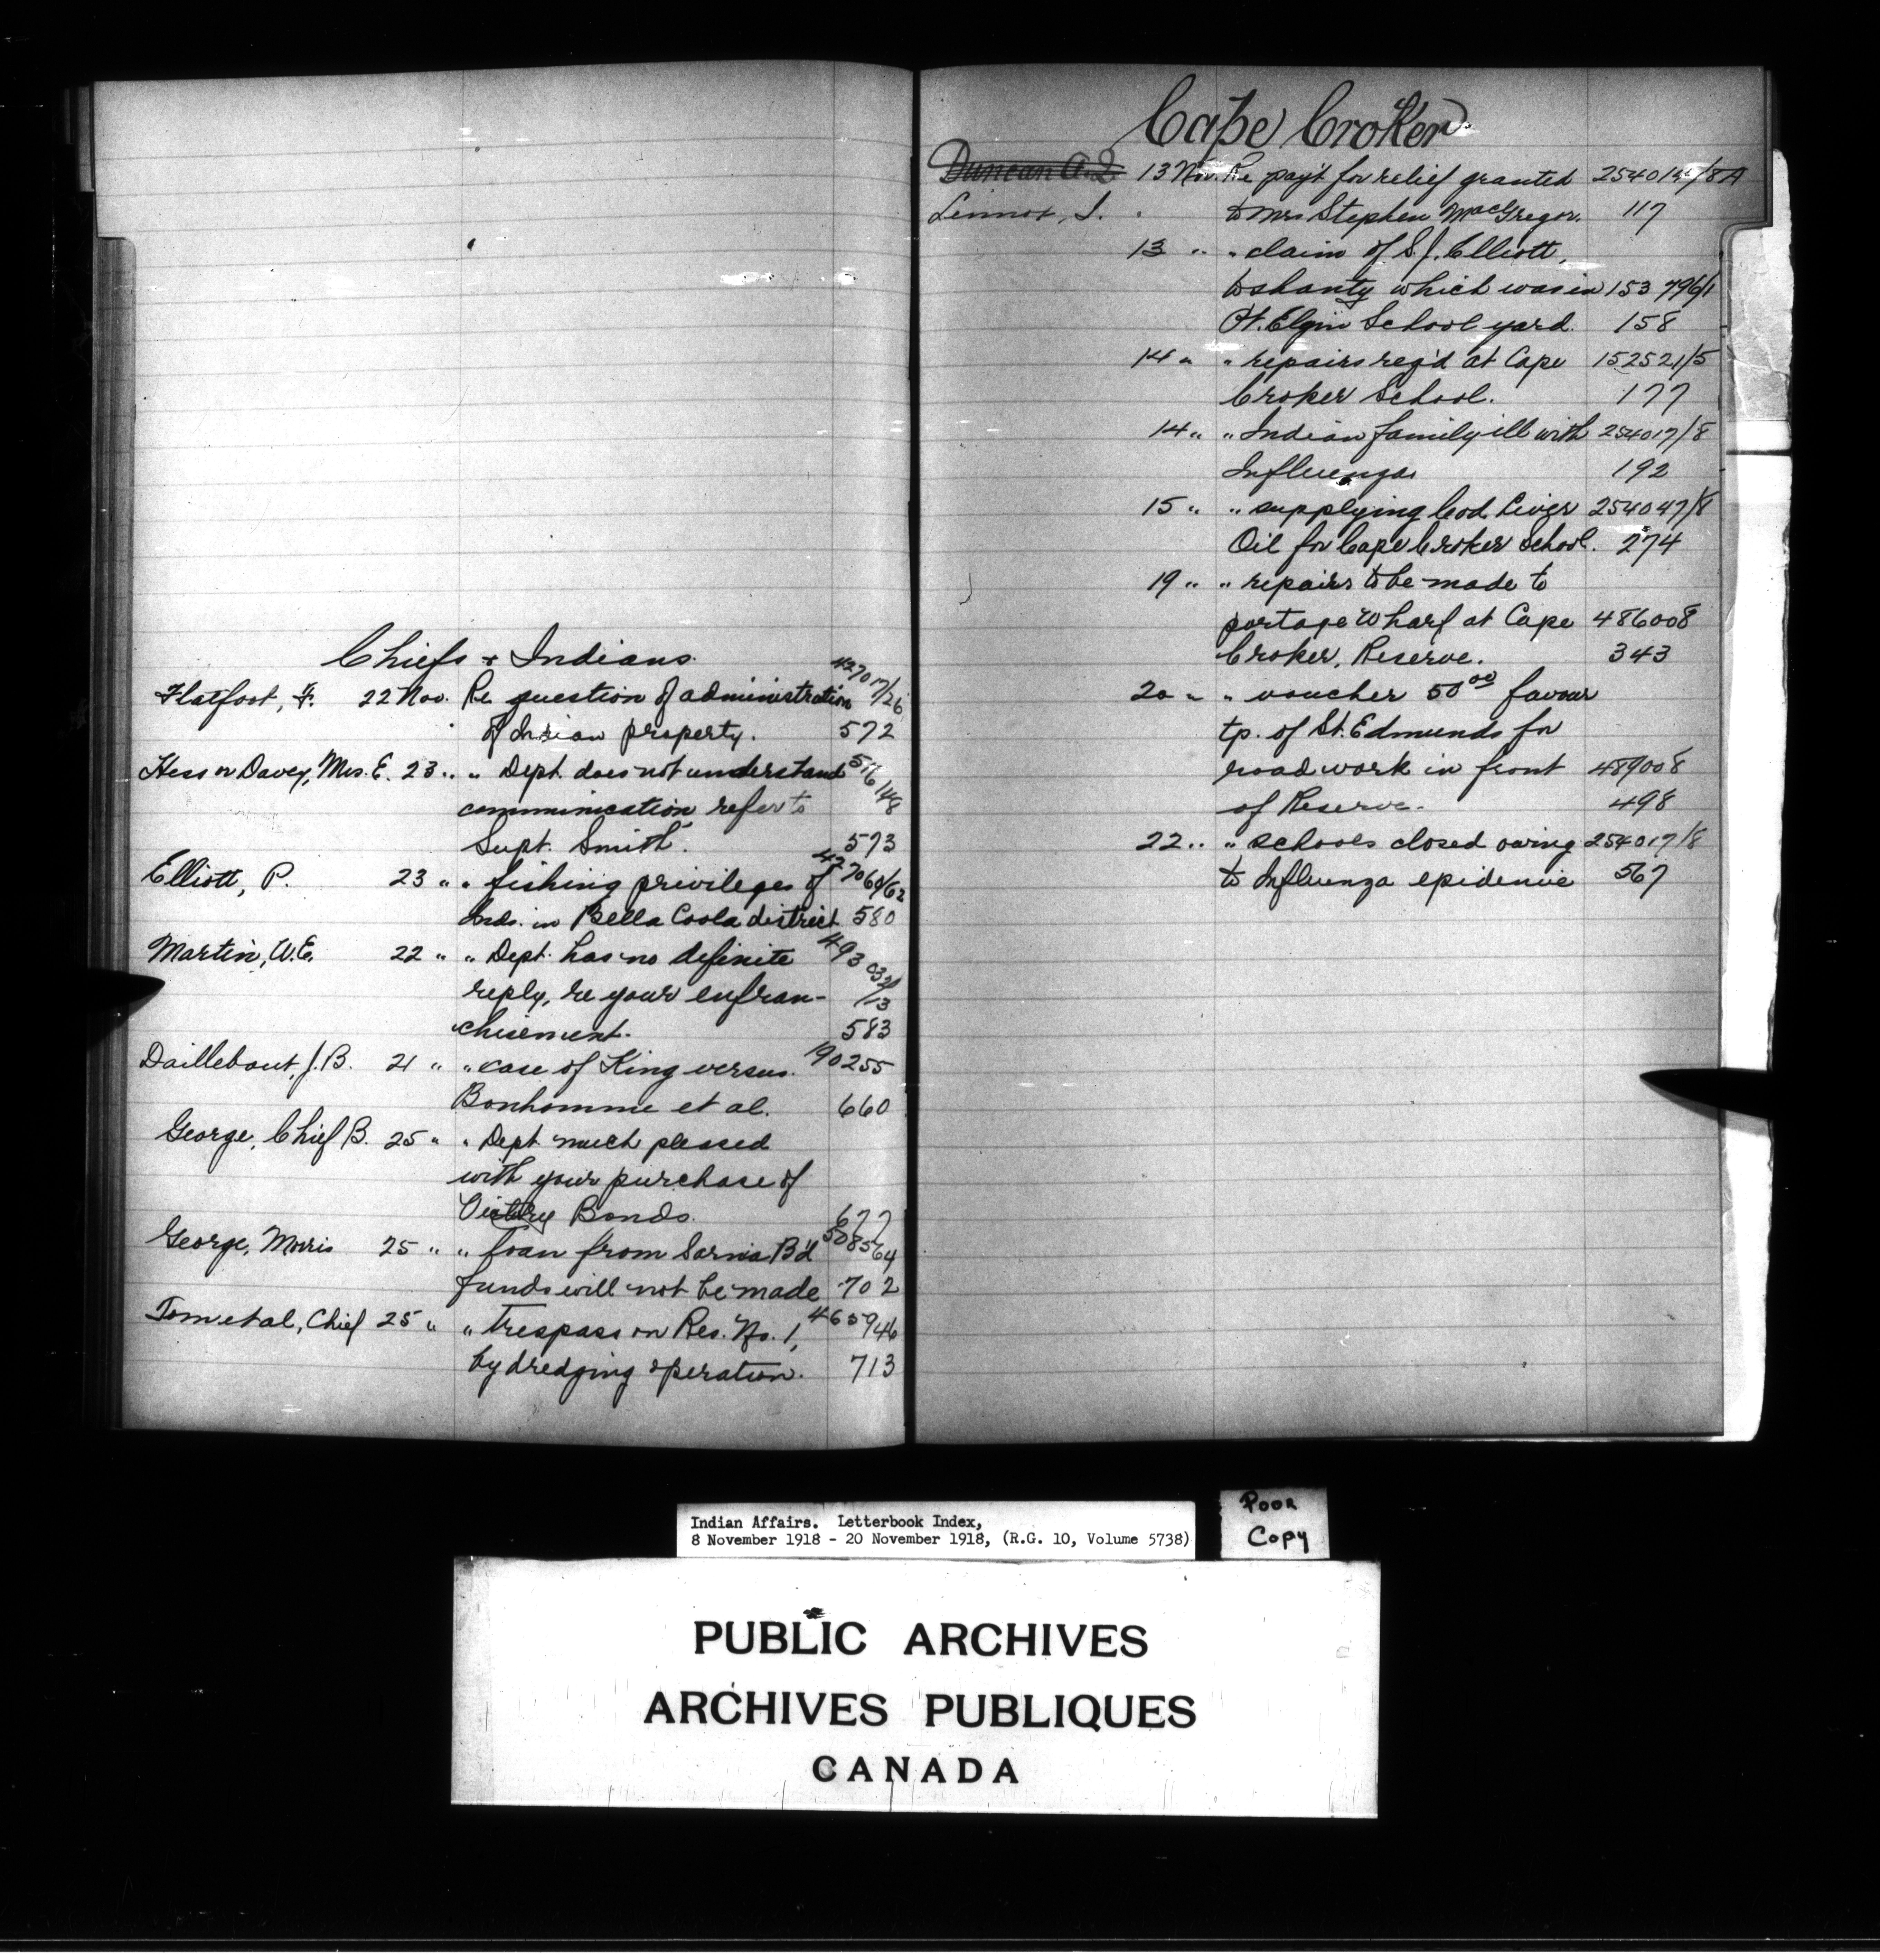 Chiefs + Indians
427017/26
Flatfoot, F. 22 Nov. Re question of administration
of Indian property. 572
Hess or Davey, Mrs. E. 23 " " Dept. does not understand 516148
communication refer to
Supt. Smith. 573
Elliott, P. 23 " " fishing privileges of 427060/62
Inds. in Bella Coola district 580
Martin, W.E. 22 " " Dept. has no definite 493032/13
reply, re your enfran-
chisement. 583
Daillebout, J.B. 21 " " case of King versus 190255
Bonhomme et al. 660
George, Chief B. 25 " " Dept much pleased
with your purchase of
Victory Bonds. 677
George, Morris 25 " " loan from Sarnia B'd 508564
funds will not be made 702
Tom et al, Chief 25 " " trespass on Res. No. 1, 465946
by dredging operation. 713
Cape Croker
Duncan A.D. 13 Nov. Re pay't for relief granted /8A
Lennox, J. " to Mrs Stephen MacGregor. 117
13 " " claim of S.J. Elliott,
to shanty which was in 153796/1
Pt. Elgin School yard. 158
14 " " repairs req'd at Cape 152521/5
Croker School. 177
14 " " Indian family ill with 254017/8
Influenza 192
15 " " supplying Cod Liver 254047/8
Oil for Cape Croker School. 274
19 " " repairs to be made to
portage wharf at Cape 486008
Croker, Reserve. 343
20 " " voucher 50 00 favour
tp. of St. Edmunds for
road work in front 489008
of Reserve. 498
22 " " schools closed owing 254017/8
to Influenza epidemic 567
Indian Affairs. Letterbook Index,
8 November 1918 - 20 November 1918, (R.G. 10, Volume 5738)
Poor
Copy
PUBLIC ARCHIVES
ARCHIVES PUBLIQUES
CANADA